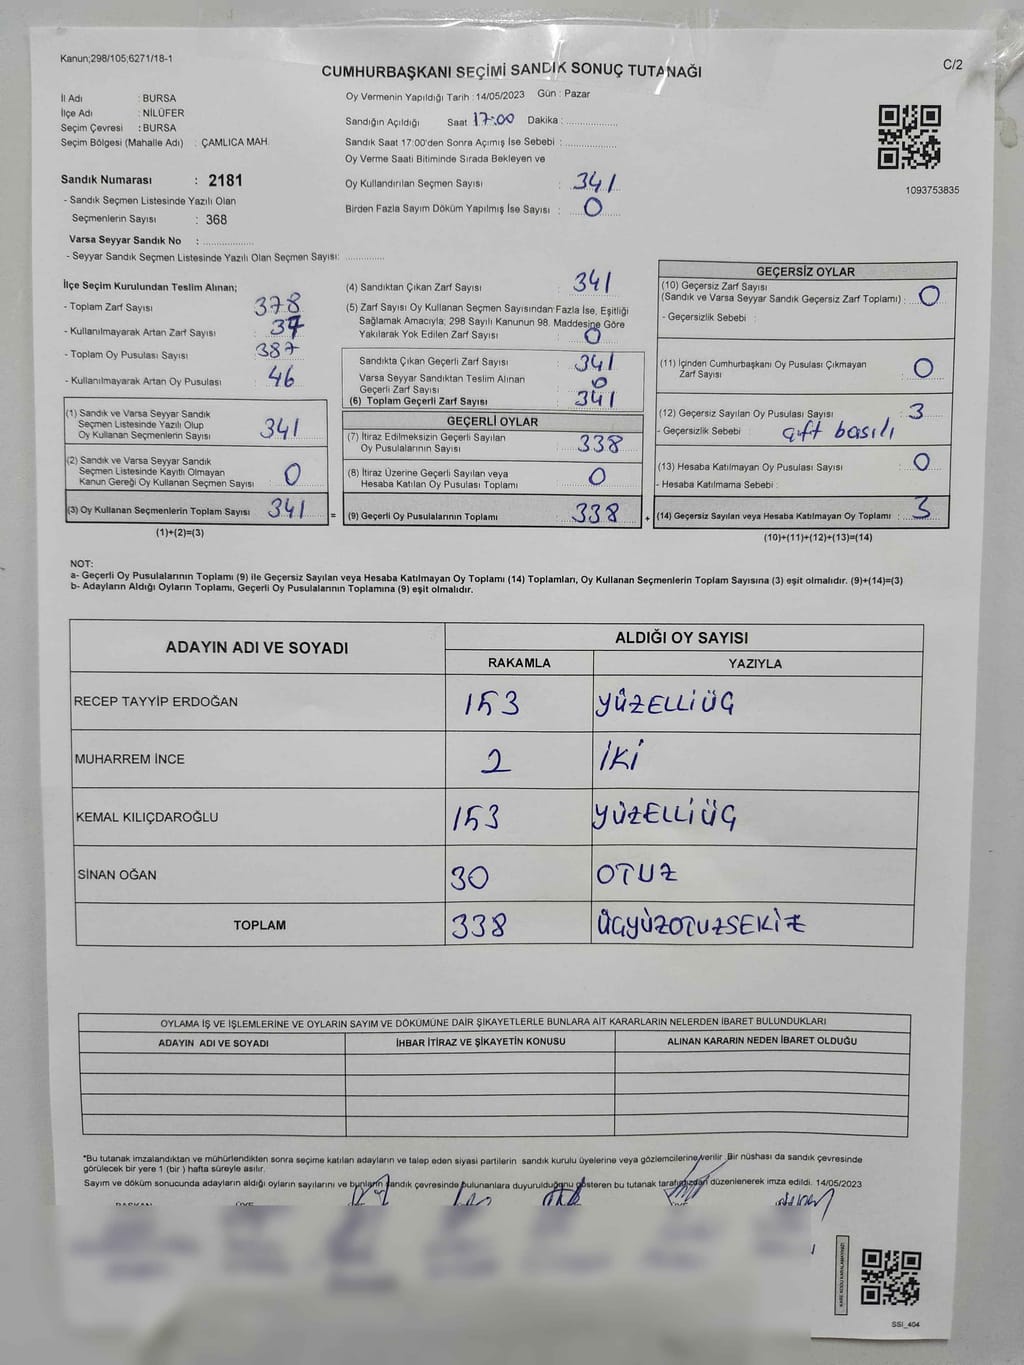 Kanun;298/105;6271/18-1
CUMHURBAŞKANI SEÇİMİ SANDIK SONUÇ TUTANAĞI
C/2
İl Adı : BURSA
İlçe Adı : NİLÜFER
Seçim Çevresi : BURSA
Seçim Bölgesi (Mahalle Adı) : ÇAMLICA MAH.
Sandık Numarası : 2181
- Sandık Seçmen Listesinde Yazılı Olan
Seçmenlerin Sayısı : 368
Varsa Seyyar Sandık No : ................
- Seyyar Sandık Seçmen Listesinde Yazılı Olan Seçmen Sayısı: ............
Oy Vermenin Yapıldığı Tarih : 14/05/2023 Gün : Pazar
Sandığın Açıldığı Saat 17:00 Dakika : ................
Sandık Saat 17:00'den Sonra Açımış İse Sebebi : ................
Oy Verme Saati Bitiminde Sırada Bekleyen ve
Oy Kullandırılan Seçmen Sayısı : 341
Birden Fazla Sayım Döküm Yapılmış İse Sayısı : 0
1093753835
İlçe Seçim Kurulundan Teslim Alınan;
- Toplam Zarf Sayısı : 378
- Kullanılmayarak Artan Zarf Sayısı : 37
- Toplam Oy Pusulası Sayısı : 387
- Kullanılmayarak Artan Oy Pusulası : 46
(1) Sandık ve Varsa Seyyar Sandık
Seçmen Listesinde Yazılı Olup
Oy Kullanan Seçmenlerin Sayısı : 341
(2) Sandık ve Varsa Seyyar Sandık
Seçmen Listesinde Kayıtlı Olmayan
Kanun Gereği Oy Kullanan Seçmen Sayısı : 0
(3) Oy Kullanan Seçmenlerin Toplam Sayısı : 341
(1)+(2)=(3)
=
(4) Sandıktan Çıkan Zarf Sayısı : 341
(5) Zarf Sayısı Oy Kullanan Seçmen Sayısından Fazla İse, Eşitliği
Sağlamak Amacıyla; 298 Sayılı Kanunun 98. Maddesine Göre
Yakılarak Yok Edilen Zarf Sayısı : 0
Sandıkta Çıkan Geçerli Zarf Sayısı : 341
Varsa Seyyar Sandıktan Teslim Alınan
Geçerli Zarf Sayısı : 0
(6) Toplam Geçerli Zarf Sayısı : 341
GEÇERLİ OYLAR
(7) İtiraz Edilmeksizin Geçerli Sayılan
Oy Pusulalarının Sayısı : 338
(8) İtiraz Üzerine Geçerli Sayılan veya
Hesaba Katılan Oy Pusulası Toplamı : 0
(9) Geçerli Oy Pusulalarının Toplamı : 338
+
GEÇERSİZ OYLAR
(10) Geçersiz Zarf Sayısı
(Sandık ve Varsa Seyyar Sandık Geçersiz Zarf Toplamı) : 0
- Geçersizlik Sebebi :
(11) İçinden Cumhurbaşkanı Oy Pusulası Çıkmayan
Zarf Sayısı : 0
(12) Geçersiz Sayılan Oy Pusulası Sayısı : 3
- Geçersizlik Sebebi : çift basılı
(13) Hesaba Katılmayan Oy Pusulası Sayısı : 0
- Hesaba Katılmama Sebebi :
(14) Geçersiz Sayılan veya Hesaba Katılmayan Oy Toplamı : 3
(10)+(11)+(12)+(13)=(14)
NOT:
a- Geçerli Oy Pusulalarının Toplamı (9) ile Geçersiz Sayılan veya Hesaba Katılmayan Oy Toplamı (14) Toplamları, Oy Kullanan Seçmenlerin Toplam Sayısına (3) eşit olmalıdır. (9)+(14)=(3)
b- Adayların Aldığı Oyların Toplamı, Geçerli Oy Pusulalarının Toplamına (9) eşit olmalıdır.
ADAYIN ADI VE SOYADI ALDIĞI OY SAYISI
RAKAMLA YAZIYLA
RECEP TAYYİP ERDOĞAN 153 YÜZELLİÜÇ
MUHARREM İNCE 2 İKİ
KEMAL KILIÇDAROĞLU 153 YÜZELLİÜÇ
SİNAN OĞAN 30 OTUZ
TOPLAM 338 ÜÇYÜZOTUZSEKİZ
OYLAMA İŞ VE İŞLEMLERİNE VE OYLARIN SAYIM VE DÖKÜMÜNE DAİR ŞİKAYETLERLE BUNLARA AİT KARARLARIN NELERDEN İBARET BULUNDUKLARI
ADAYIN ADI VE SOYADI İHBAR İTİRAZ VE ŞİKAYETİN KONUSU ALINAN KARARIN NEDEN İBARET OLDUĞU
*Bu tutanak imzalandıktan ve mühürlendikten sonra seçime katılan adayların ve talep eden siyasi partilerin sandık kurulu üyelerine veya gözlemcilerine verilir. Bir nüshası da sandık çevresinde
görülecek bir yere 1 (bir ) hafta süreyle asılır.
Sayım ve döküm sonucunda adayların aldığı oyların sayılarını ve bunların sandık çevresinde bulunanlara duyurulduğunu gösteren bu tutanak tarafımızdan düzenlenerek imza edildi. 14/05/2023
SSİ_404